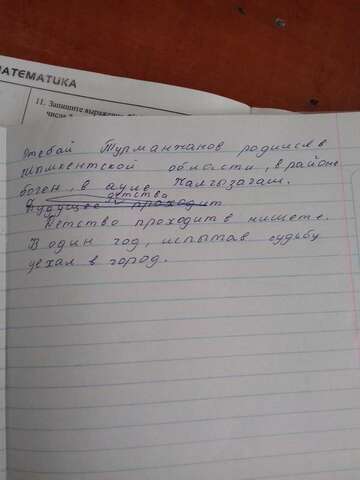 МАТЕМАТИКА
11. Запишите выражение
числе
Өтебай Турманжанов родился в
Шымкентской области, в районе
боген, в ауле Жалгызагаш.
детство
Будущее проходит
Детство проходит в нищете.
В один год, испытав судьбу
уехал в город.